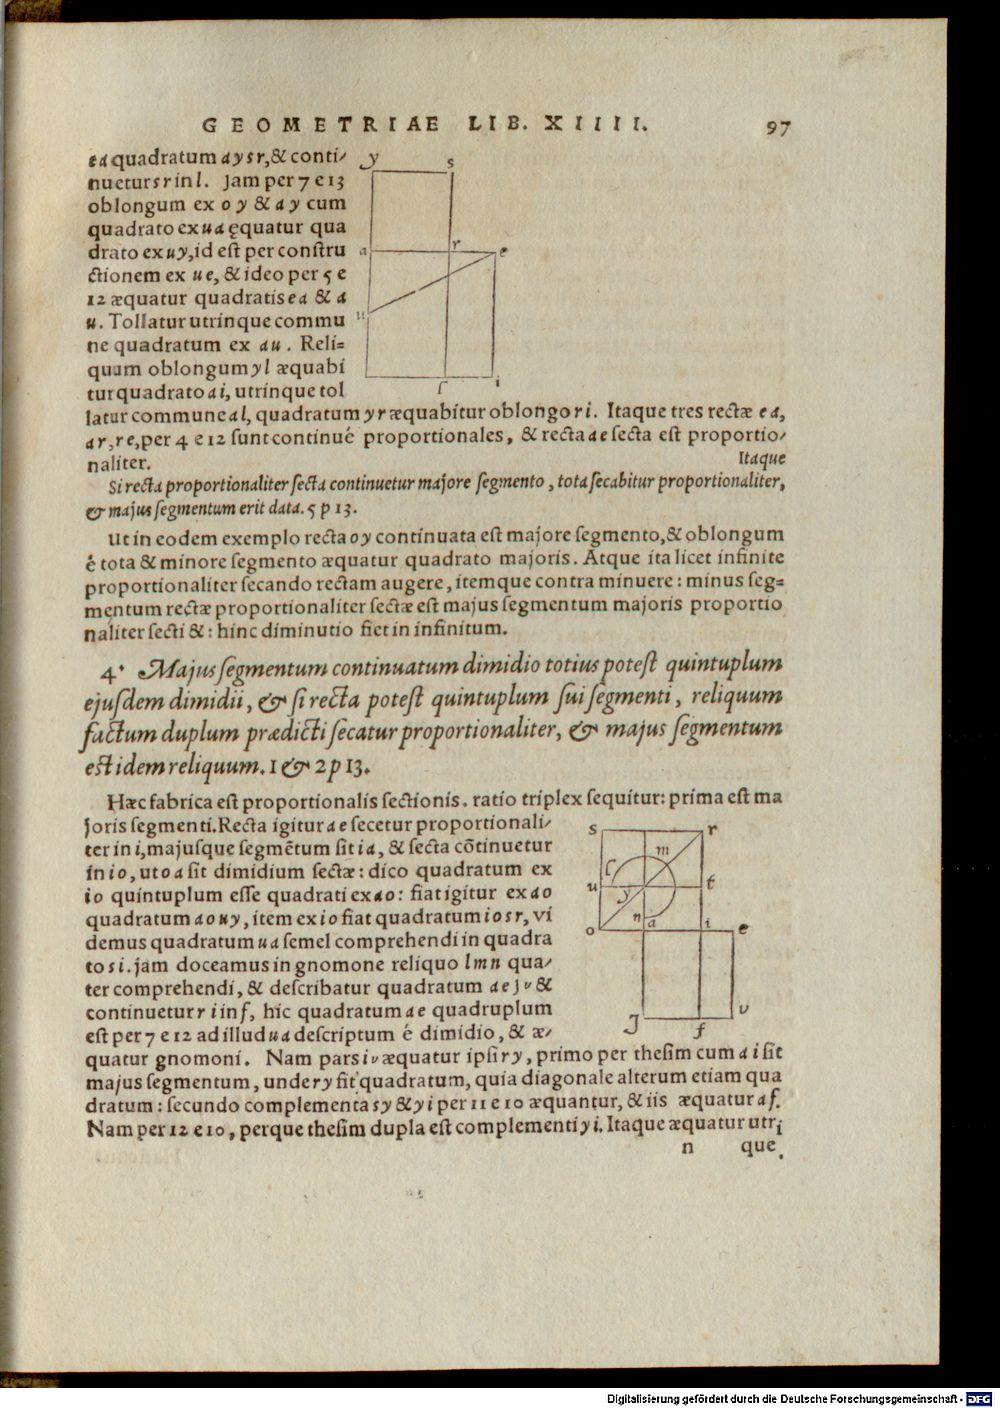 GEOMETRIAE LIB. XIIII. 97
ea quadratum aysr, & conti-
nuetur sr in l. Jam per 7 e 13
oblongum ex oy & ay cum
quadrato ex ua ęquatur qua
drato ex uy, id est per constru
ctionem ex ue, & ideo per 5 e
12 æquatur quadratis ea & a
u. Tollatur utrinque commu
ne quadratum ex au. Reli=
quum oblongum yl æquabi
tur quadrato ai, utrinque tol
latur commune al, quadratum yr æquabitur oblongo ri. Itaque tres rectæ ea,
ar, re, per 4 e 12 sunt continué proportionales, & recta ae secta est proportio-
naliter. Itaque
Si recta proportionaliter secta continuetur majore segmento, tota secabitur proportionaliter,
& majus segmentum erit data. 5 p 13.
Ut in eodem exemplo recta oy continuata est majore segmento, & oblongum
é tota & minore segmento æquatur quadrato majoris. Atque ita licet infinite
proportionaliter secando rectam augere, itemque contra minuere: minus seg=
mentum rectæ proportionaliter sectæ est majus segmentum majoris proportio
naliter secti &: hinc diminutio fiet in infinitum.
4. Majus segmentum continuatum dimidio totius potest quintuplum
ejusdem dimidii, & si recta potest quintuplum sui segmenti, reliquum
factum duplum prædicti secatur proportionaliter, & majus segmentum
est idem reliquum. 1 & 2 p 13.
Hæc fabrica est proportionalis sectionis. ratio triplex sequitur: prima est ma
joris segmenti. Recta igitur ae secetur proportionali-
ter in i, majusque segmētum sit ia, & secta cōtinuetur
in io, ut oa sit dimidium sectæ: dico quadratum ex
io quintuplum esse quadrati ex ao: fiat igitur ex ao
quadratum aouy, item ex io fiat quadratum iosr, vi
demus quadratum ua semel comprehendi in quadra
to si. jam doceamus in gnomone reliquo lmn qua-
ter comprehendi, & describatur quadratum aejv &
continuetur ri in f, hîc quadratum ae quadruplum
est per 7 e 12 ad illud ua descriptum é dimidio, & æ-
quatur gnomoni. Nam pars iv æquatur ipsi ry, primo per thesim cum ai sit
majus segmentum, unde ry fit quadratum, quia diagonale alterum etiam qua
dratum: secundo complementa sy & yi per 11 e 10 æquantur, & iis æquatur af.
Nam per 12 e 10, perque thesim dupla est complementi yi. Itaque æquatur utri
n que
y s
a r e
u
l i
s r
l m
u y t
n
o a i e
J f v
Digitalisierung gefördert durch die Deutsche Forschungsgemeinschaft - DFG